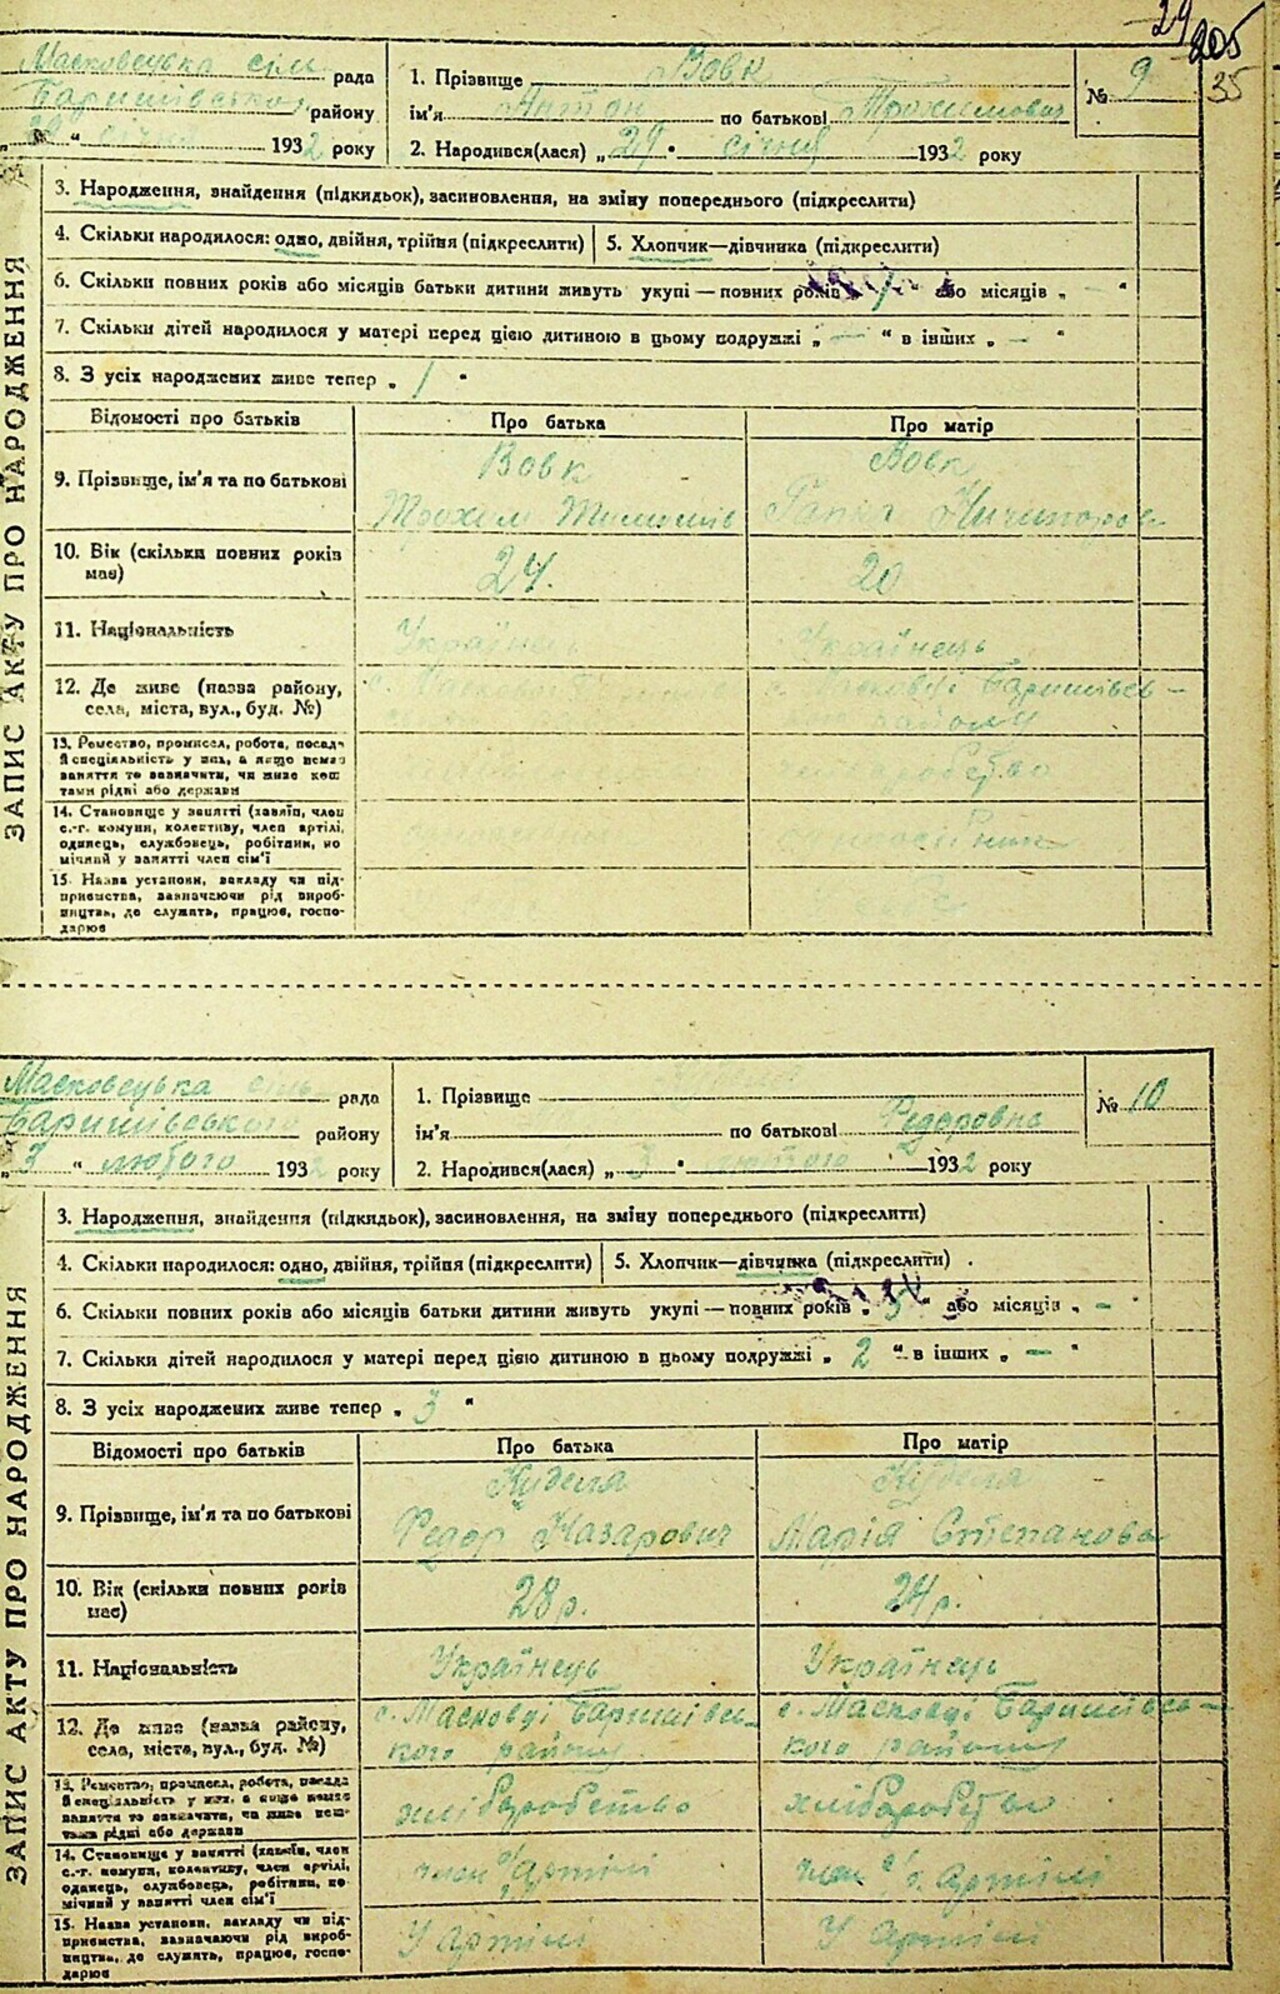 29
205
35
Масковецька сіль рада
Баришівського району
29 " січня 1932 року
1. Прізвище Вовк
ім'я Антон по батькові Трохимович
№ 9
2. Народився(лася) „ 29 " січня 1932 року
ЗАПИС АКТУ ПРО НАРОДЖЕННЯ
3. Народження, знайдення (підкидьок), засиновлення, на зміну попереднього (підкреслити)
4. Скільки народилося: одно, двійня, трійня (підкреслити)
5. Хлопчик—дівчинка (підкреслити)
6. Скільки повних років або місяців батьки дитини живуть укупі — повних років „ 1 " або місяців „ — "
7. Скільки дітей народилося у матері перед цією дитиною в цьому подружжі „ — " в інших „ — "
8. З усіх народжених живе тепер „ 1 "
Відомості про батьків
Про батька
Про матір
9. Прізвище, ім'я та по батькові
Вовк
Трохим
Вовк
Гапка Ничипоров-
10. Вік (скільки повних років має)
24.
20
11. Національність
Українець
Українець
12. Де живе (назва району, села, міста, вул., буд. №)
с. Масковці
с. Масковці Баришівсь-
кого району
13. Ремество, промисел, робота, посада
й спеціальність у них, а якщо немає
заняття то зазначити, чи живе кош-
тами рідні або держави
хліборобство
14. Становище у занятті (хазяїн, член
с.-г. комуни, колективу, член артілі,
одинець, службовець, робітник, по
мічний у занятті член сім'ї
15. Назва установи, закладу чи під-
приємства, зазначаючи рід вироб-
ництва, де служить, працює, госпо-
дарює
Масковецька сіль рада
Баришівського району
„ 3 " лютого 1932 року
1. Прізвище
ім'я по батькові Федоровна
№ 10
2. Народився(лася) „ 3 " лютого 1932 року
ЗАПИС АКТУ ПРО НАРОДЖЕННЯ
3. Народження, знайдення (підкидьок), засиновлення, на зміну попереднього (підкреслити)
4. Скільки народилося: одно, двійня, трійня (підкреслити)
5. Хлопчик—дівчинка (підкреслити)
6. Скільки повних років або місяців батьки дитини живуть укупі — повних років „ 5 " або місяців „ — "
7. Скільки дітей народилося у матері перед цією дитиною в цьому подружжі „ 2 " в інших „ — "
8. З усіх народжених живе тепер „ 3 "
Відомості про батьків
Про батька
Про матір
9. Прізвище, ім'я та по батькові
Куделя
Федор Назарович
Куделя
Марія Степановн
10. Вік (скільки повних років має)
28 р.
24 р.
11. Національність
Українець
Українець
12. Де живе (назва району, села, міста, вул., буд. №)
с. Масковці Баришівсь-
кого району
с. Масковці Баришівсь-
кого району
13. Ремество, промисел, робота, посада
й спеціальність у них, а якщо немає
заняття то зазначити, чи живе кош-
тами рідні або держави
хліборобство
хліборобство
14. Становище у занятті (хазяїн, член
с.-г. комуни, колективу, член артілі,
одинець, службовець, робітник, по
мічний у занятті член сім'ї
член артілі
член с/г. артілі
15. Назва установи, закладу чи під-
приємства, зазначаючи рід вироб-
ництва, де служить, працює, госпо-
дарює
У артілі
У артілі